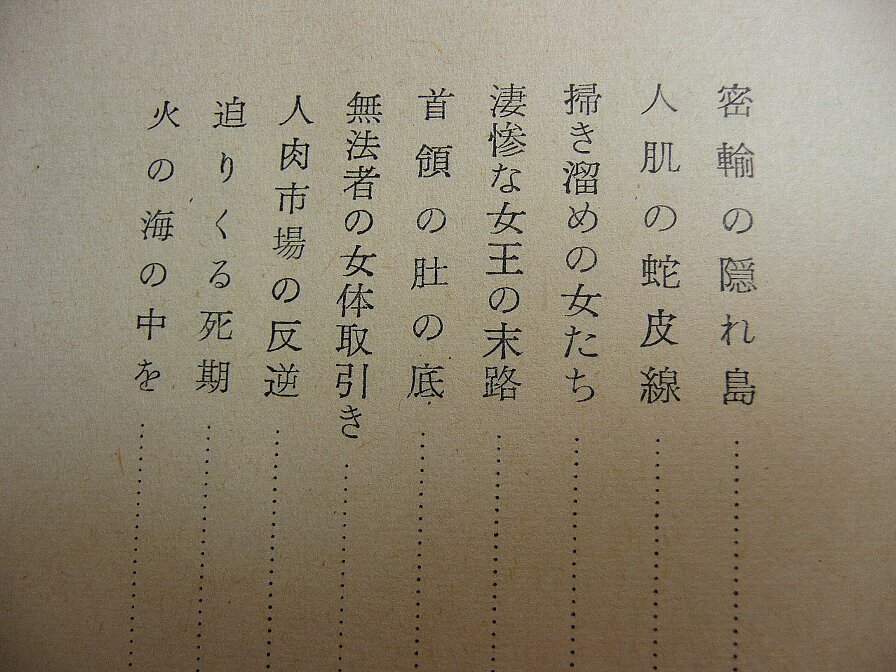 密輸の隠れ島
人肌の蛇皮線
掃き溜めの女たち
凄惨な女王の末路
首領の肚の底
無法者の女体取引き
人肉市場の反逆
迫りくる死期
火の海の中を